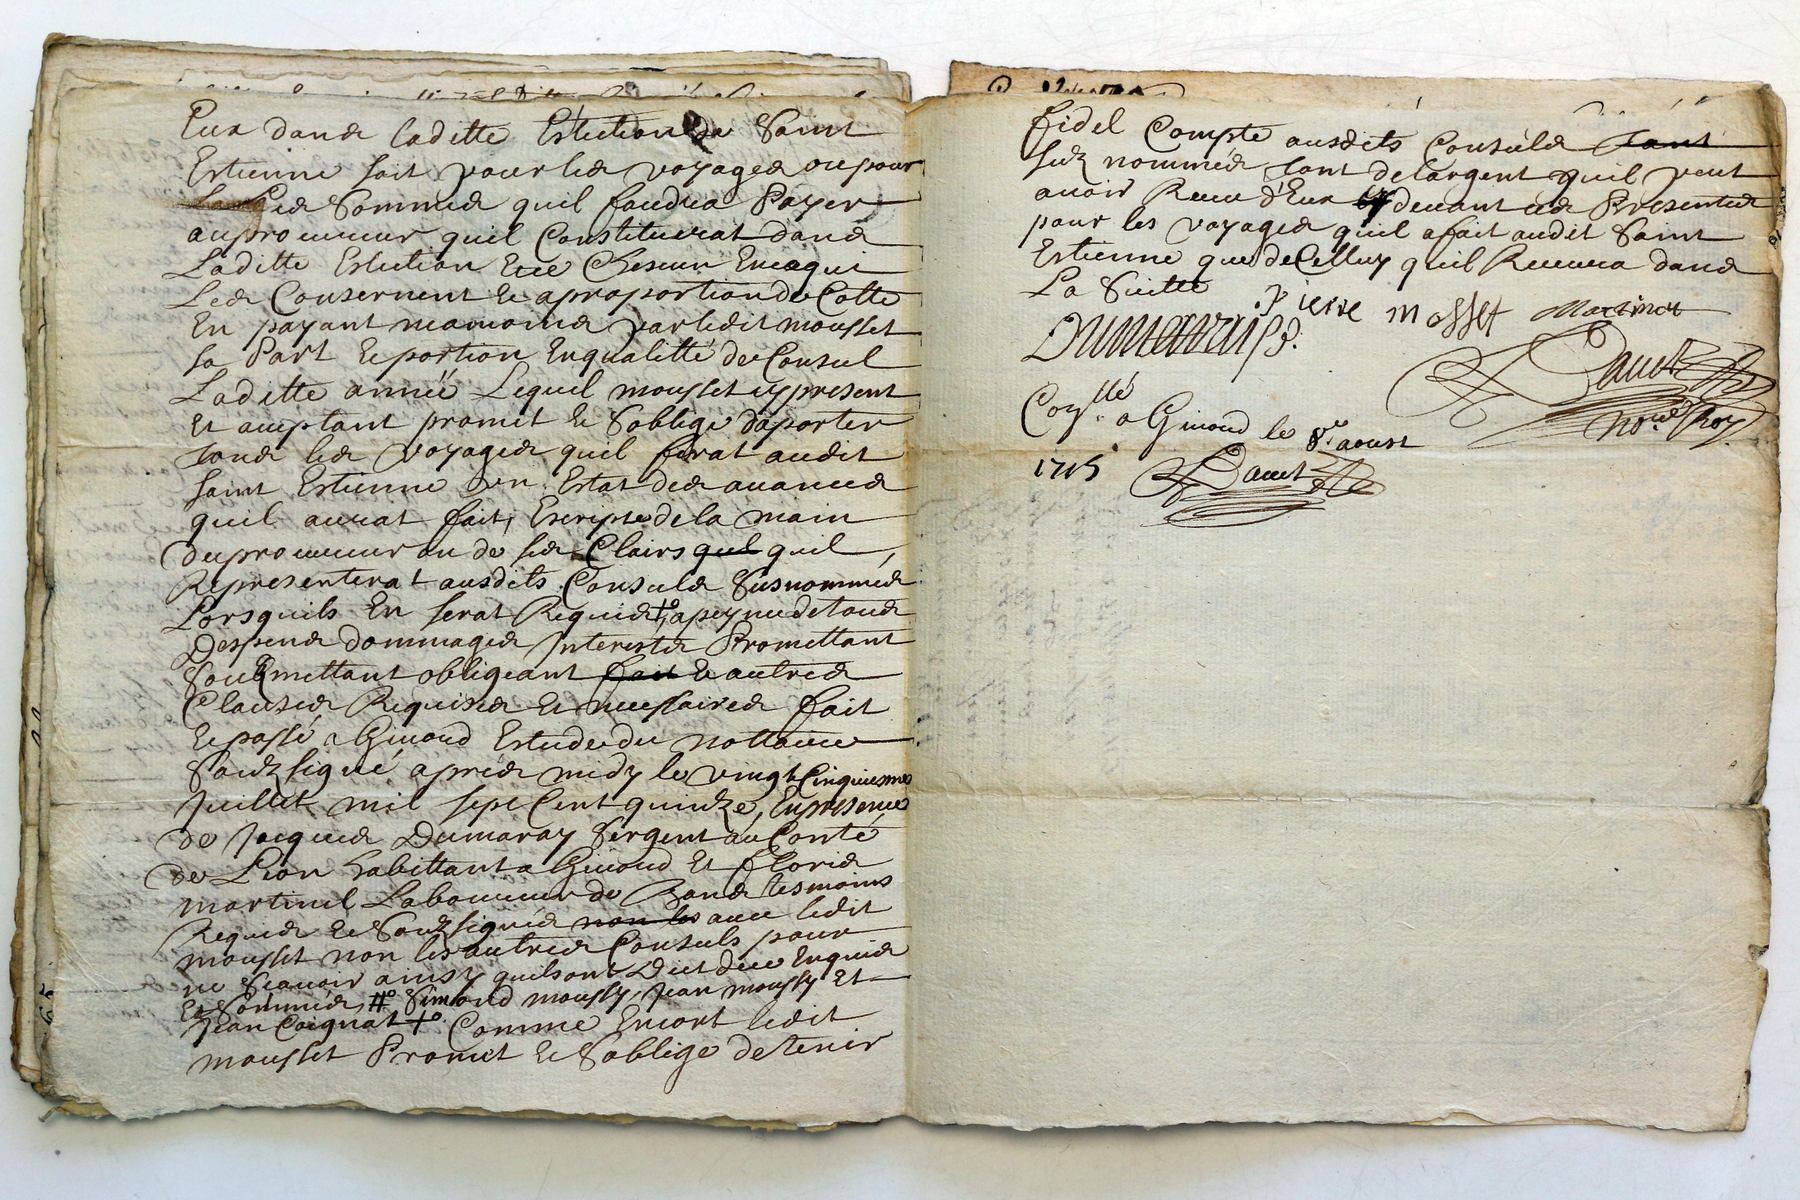 Eux dans laditte Eslection de Saint
Estienne soit pour les voyages ou pour
les Sommes quil faudra Payer
au procureur quil Constituerat dans
Laditte Eslection Et Chescun En ce qui
Les Consernent & a proportion de Cotte
En payant neanmoins par ledit mousset
sa Part & portion En qualitté de Consul
Laditte année Lequel mousset icy present
Et acceptant promet & Soblige daporter
tous les voyages quil ferat audit
saint Estienne un Estat des avances
quil aurat fait, Escripte de la main
du procureur ou de ses Clairs quil quil
Representerat ausdits Consuls Susnommés
Lorsquils En serat Requis +° a peyne de tous
Despens dommages Interests Promettant
Soubmettant obligeant fait & autres
Clauses Requises & necessaires fait
& passé a Giuord Estude du nottaire
Soubz signé apres midy le vingt Cinquiesme
Juillet mil sept Cent quindze, En presence
de Jacques Dumaray Sergent au Conté
de Lion habittant a Giuord Et Floris
martinel Laboureur de Bans tesmoins
Requis & Soubz signés non les avec ledit
mousset non les autres Consuls pour
ne Scavoir ainsy quils ont Dict de ce Enquis
& Sommés, #° Simond moussy, Jean moussy Et
Jean Coignat +° Comme Encort ledit
mousset Promet & Soblige de tenir
fidel Compte ausdits Consuls tant
susz nommés tant de largent quil peut
avoir Receu d'Eux cy devant ces Presentes
pour les voyages quil a fait audit Saint
Estienne que de Celluy quil Recevra dans
La Suitte
Pierre mosset Martinel
Dumarais.
not.re Roy.
Coll.né a Giuord le 8.e aoust
1715